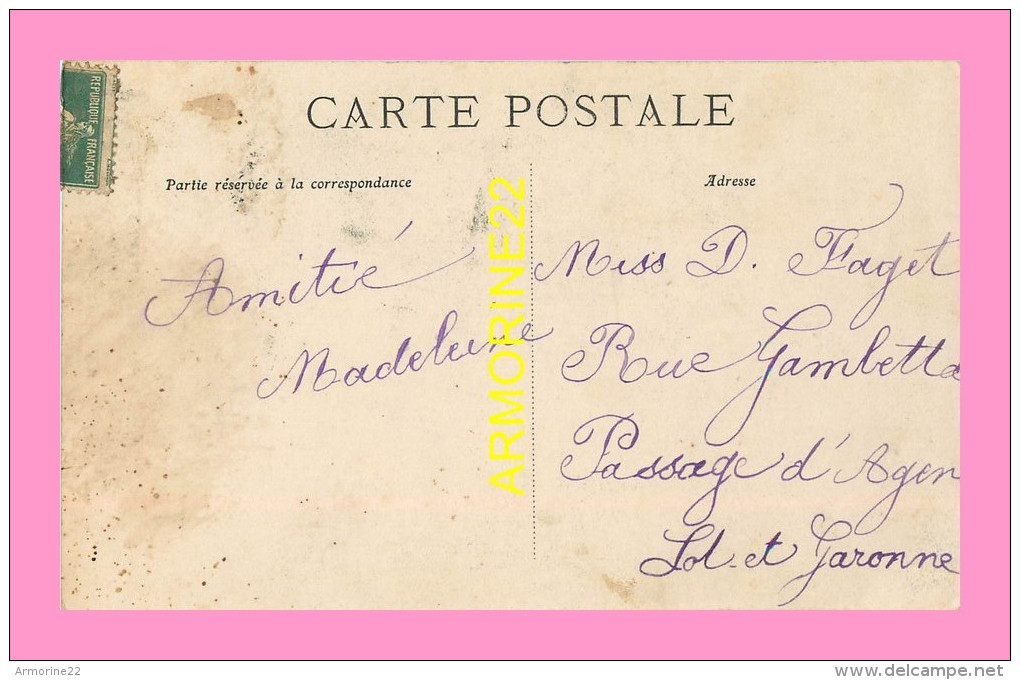 REPUBLIQUE FRANÇAISE
CARTE POSTALE
Partie réservée à la correspondance
Adresse
Amitié
Madeleine
Miss D. Faget
Rue Gambetta
Passage d'Agen
Lot-et Garonne
ARMORINE22
Armorine22
www.delcampe.net